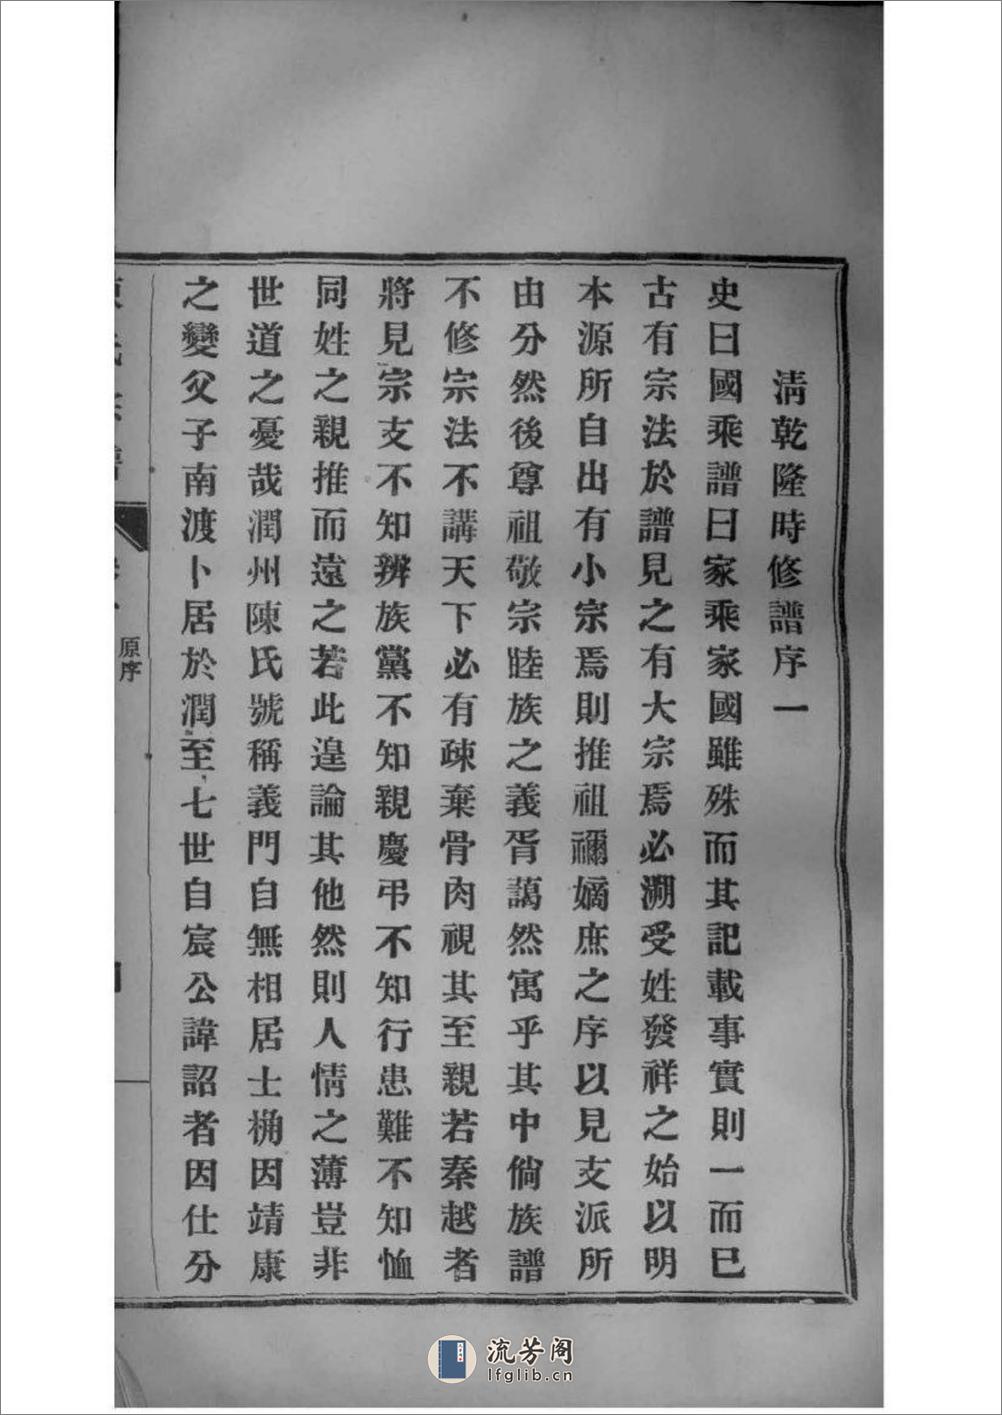 清乾隆時修譜序一
史曰國乘譜曰家乘家國雖殊而其記載事實則一而已
古有宗法於譜見之有大宗焉必溯受姓發祥之始以明
本源所自出有小宗焉則推祖禰嫡庶之序以見支派所
由分然後尊祖敬宗睦族之義胥藹然寓乎其中倘族譜
不修宗法不講天下必有疎棄骨肉視其至親若秦越者
將見宗支不知辨族黨不知親慶弔不知行患難不知恤
同姓之親推而遠之若此遑論其他然則人情之薄豈非
世道之憂哉潤州陳氏號稱義門自無相居士桷因靖康
之變父子南渡卜居於潤至七世自宸公諱詔者因仕分
原序
流芳阁
lfglib.cn